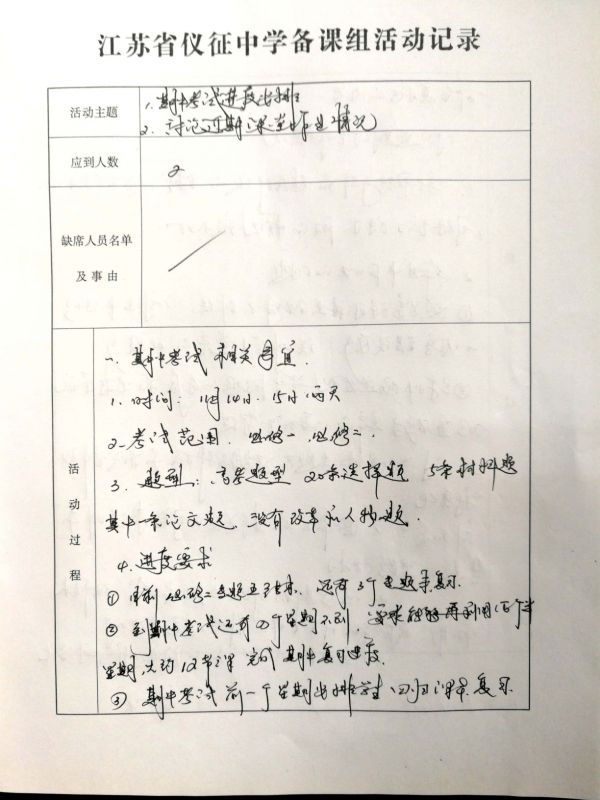 江苏省仪征中学备课组活动记录
活动主题
1. 期中考试进度安排
2. 讨论近期课堂作业情况
应到人数
2
缺席人员名单
及事由
活动过程
一、期中考试相关事宜.
1. 时间: 11月14日、15日 两天
2. 考试范围. 必修一 必修二.
3. 题型: 高考题型 20条选择题 5条材料题
其中一条论文题. 没有改革和人物题.
4. 进度要求
① 目前必修二专题五结束, 还有3个专题未复习.
② 到期中考试还有四个星期不到 要求 再利用 个半
星期, 大约12节课 完成期中复习进度.
③ 期中考试前一个星期安排学生回归课本复习.